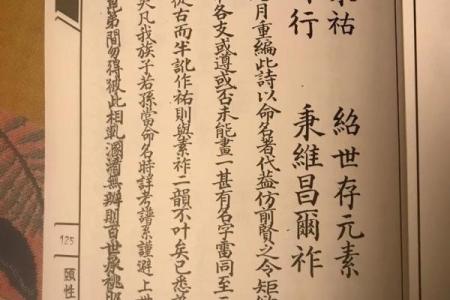 祐 紹世存元素
行 秉維昌爾祚
月重編此詩以命名著代益仿前賢之令矩
各支或遵或否未能畫一甚有名字雷同至
從古而半訛作祐則與素祚二韻不叶矣已悉
凡我族子若孫當命名時詳考譜系謹避上世
弟間勿得彼此相溷淆無辨則百世承祧
125
頤性